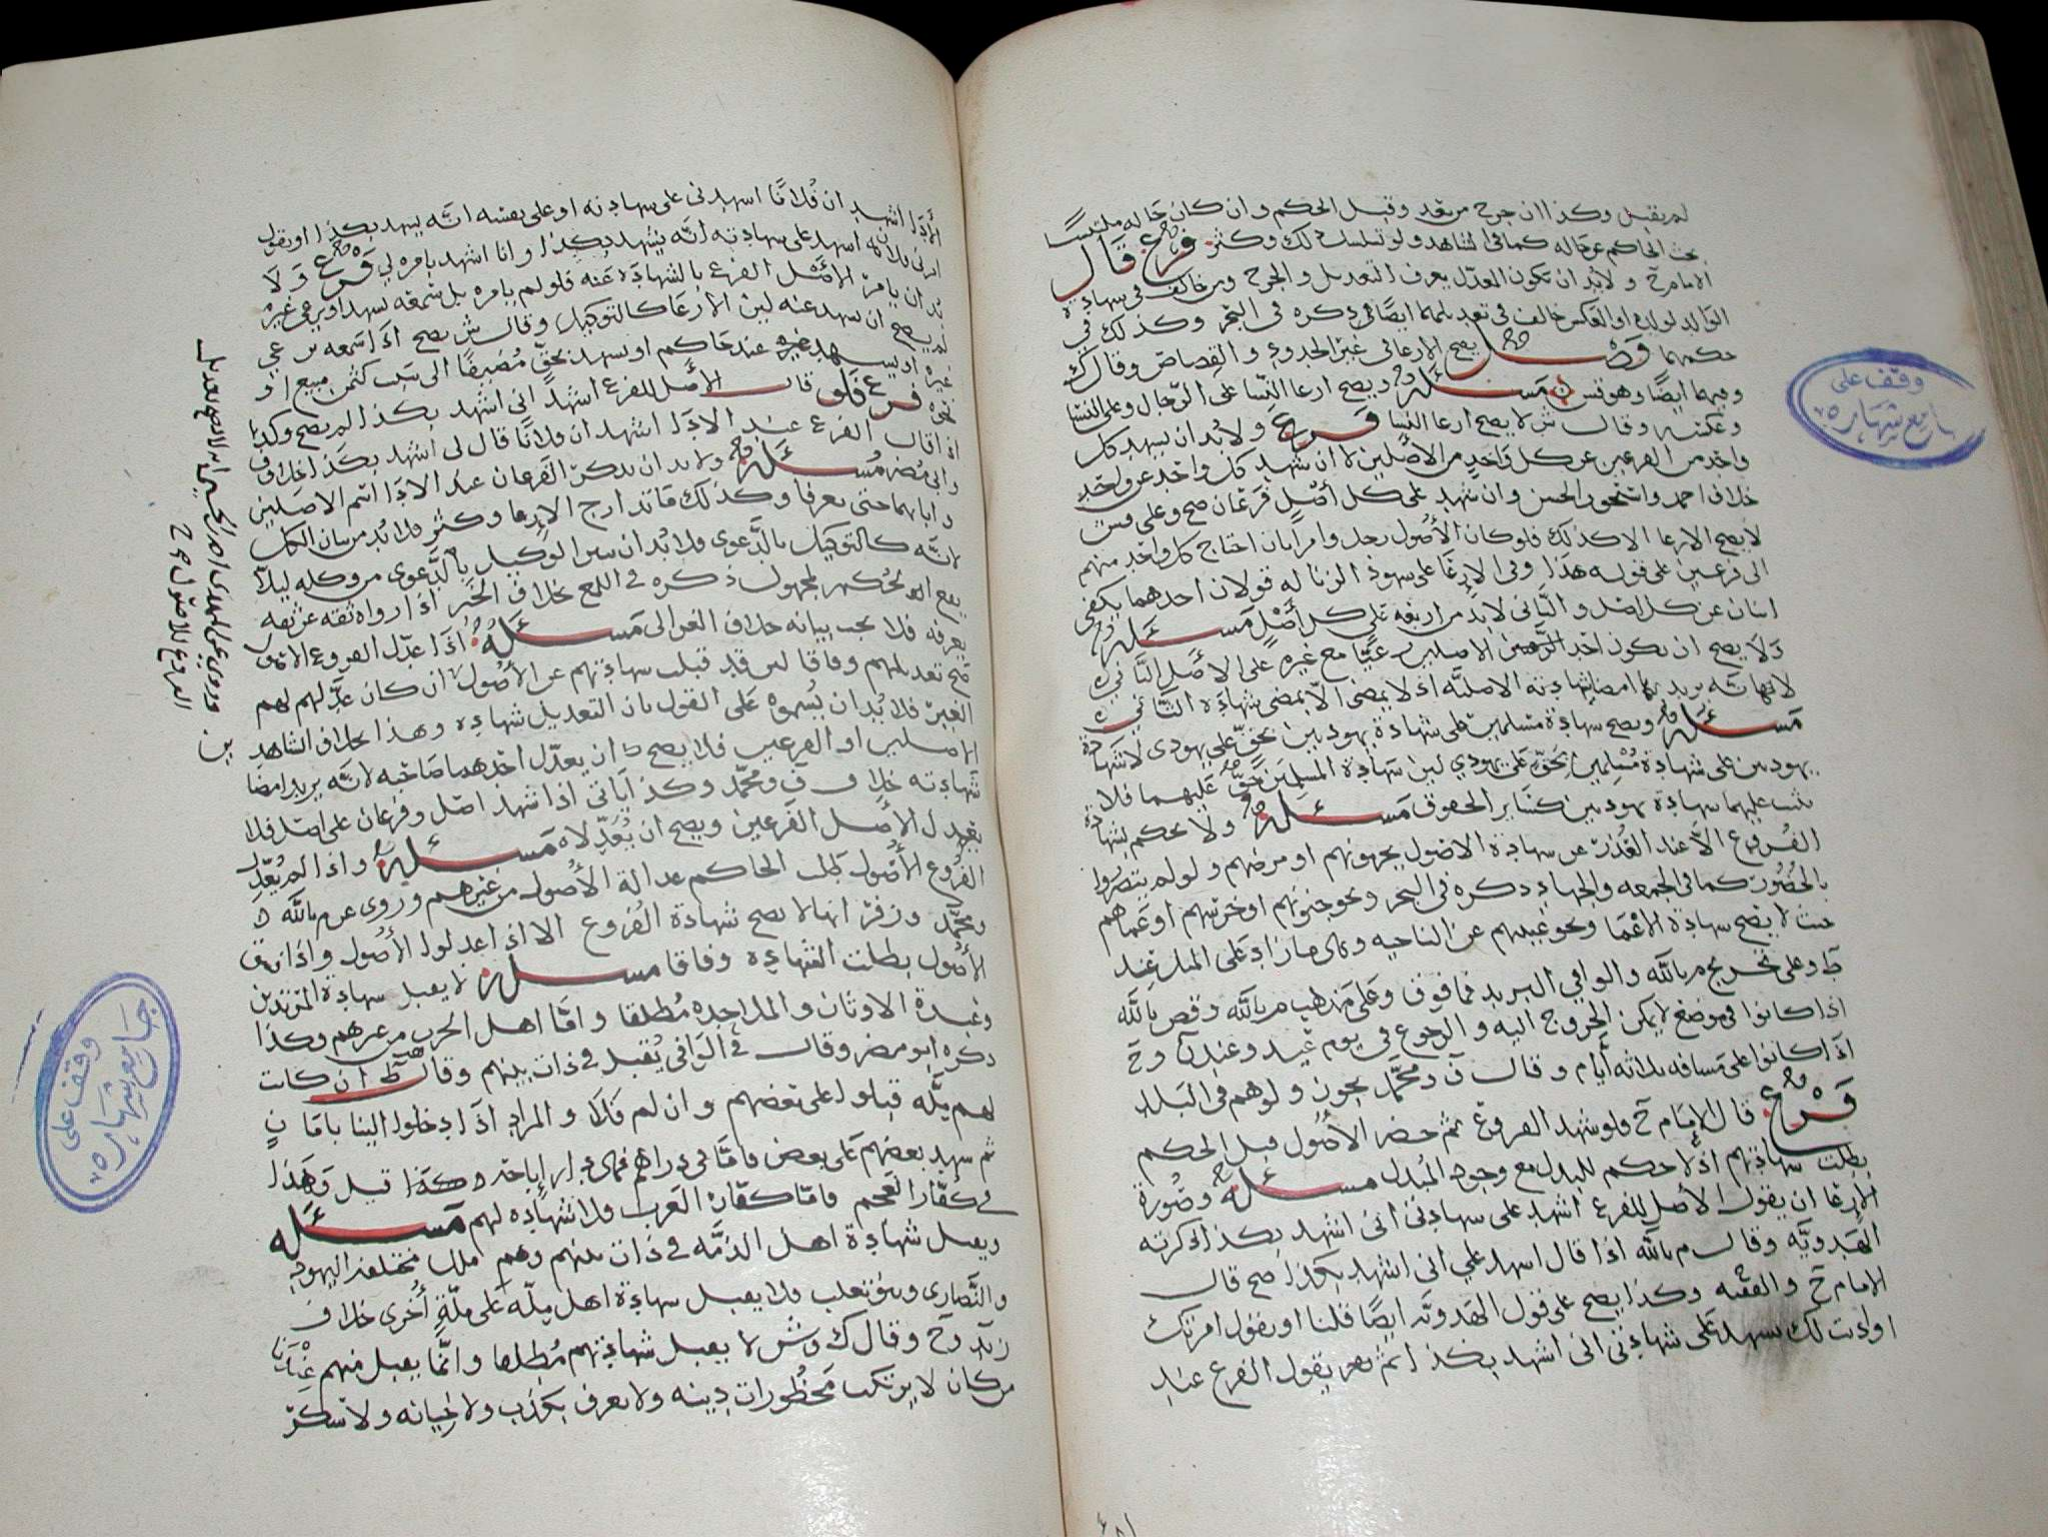 لم يقبل وكذا ان جرح من بعد وقبل الحكم وان كان حاله ملتبسا
بحث الحاكم عن حاله كما في الشاهد ولو تسلسل ذلك وكثر فرع قال
الامام ح ولابد ان يكون المعدل يعرف التعديل والجرح ومن خالف في شهادة
الوالد لولده او العكس خالف في تعديلهما ايضا ذكره في البحر وكذلك في
حكمهما فصل يصح الارعا في غير الحدود والقصاص وقال ك
وفيهما ايضا وهو قس ن مسئلة ويصح ارعا النسا على الرجال وعلى النسا
وعكسه وقال ش لا يصح ارعا النسا فرع ولابد ان يشهد كل
واحد من الفرعين عن كل واحد من الأصلين لا ان شهد كل واحد عن واحد
خلاف احمد واسحق والحسن وان شهد على كل أصل فرعان صح وعلى قس
لا يصح الارعا الا كذلك فلو كان الأصول رجل وامرأتان احتاج كل واحد منهم
الى فرعين على قوله هذا وفي الارعا على شهود الزنا له قولان احدهما يكفي
اثنان عن كل اصل والثاني لابد من اربعة على كل أصل مسئلة
ولا يصح ان يكون احد الاصلين مع غيره على الأصل الثاني
لانه يريد بها امضا شهادته الاصلية اذ لا يمضى الا بمضى شهادة الثاني
مسئلة ويصح شهادة مسلمين على شهادة يهوديين بحق على يهودي لا شهادة
يهوديين على شهادة مسلمين بحق على يهودي لان شهادة المسلمين حق عليهما فلا
يثبت عليهما بشهادة يهوديين كسائر الحقوق مسئلة ولا يحكم بشهادة
الفروع الا عند العذر عن شهادة الاصول بموتهم او مرضهم ولو لم يتضرروا
بالحضور كما في الجمعه والجهاد ذكره في البحر ونحو جنونهم او خرسهم او عماهم
حيث لا يصح شهادة الاعما ونحو غيبتهم عن الناحيه وهي ما زاد على الميل عند
ط وعلى تخريج م بالله والوافي البريد فما فوق وعلى مذهب م بالله وقص بالله
اذا كانوا في موضع لا يمكن الخروج اليه والرجوع في يوم عيد وعند ن وح
اذا كانوا على مسافه ثلاثه أيام وقال ف ومحمد يجوز ولو هم في البلد
فرع قال الإمام ح ولو شهد الفروع ثم حضر الأصول قبل الحكم
بطلت شهادتهم اذ لا حكم للبدل مع وجود المبدل مسئلة وصورة
الارعا ان يقول الأصل للفرع اشهد على شهادتي اني اشهد بكذا ذكرته
الهدوية وقال م بالله اذا قال اشهد علي اني اشهد بكذا صح قال
الامام ح والفقيه وكذا يصح على قول الهدويه ايضا قلنا او يقول امرتك
او اذنت لك تشهد على شهادتي اني اشهد بكذا ثم يقول الفرع عند
وقف على
جامع شهاره
الأدا اشهد ان فلانا اشهدني على شهادته او على نفسه انه يشهد بكذا او يقول
امرني فلان ان اشهد على شهادته أنه يشهد بكذا وانا اشهد بامره لي فرع ولا
بد ان يامر الأصل الفرع بالشهادة عنه فلو لم يامره بل سمعه يشهد او يرعي غيره
لم يصح ان يشهد عنه لان الارعا كالتوكيل وقال ش يصح اذا سمعه يرعي
غيره او يشهد عند حاكم او يشهد بحق مضيفا الى سبب كثمن مبيع او
نحوه فرع فلو قال الأصل للفرع اشهد اني اشهد بكذا لم يصح وكذا
اذا قال الفرع عند الادا اشهد ان فلانا قال لي اشهد بكذا خلاف ف
وابي مضر مسئلة ولابد ان يذكر الفرعان عند الادا اسم الاصلين
وابا بهما حتى يعرفا وكذلك من ادرج الارعا وكثر فلابد من بيان الكل
لانه كالتوكيل بالدعوى فلابد ان يبين الوكيل بالدعوى من وكله ليلا
يقع الحكم لمجهول ذكره في اللمع بخلاف الخبر اذا رواه ثقه عن ثقه
يعرفه فلا يجب بيانه خلاف الغزالي مسئلة اذا عدل الفروع الاصول
صح تعديلهم وفاقا لمن قد قبلت شهادتهم عن الأصول ان كان عدلهم لهم
الغير فلابد ان يسموه على القول بان التعديل شهاده وهذا بخلاف الشاهد
الاصلين او الفرعين فلا يصح ان يعدل احدهما صاحبه لانه يريد امضا
شهادته خلاف ف ومحمد وكذا يأتي اذا شهد اصل وفرعان على اصل فلا
يعدل الأصل الفرعين ويصح ان يعدلاه مسئلة واذا لم يعدل
الفروع الأصول طلب الحاكم عدالة الأصول من غيرهم وروى عن م بالله
ومحمد وزفر انها لا تصح شهادة الفروع الا اذا عدلوا الأصول واذا فسق
الأصول بطلت الشهاده وفاقا مسئلة لا يقبل شهادة المرتدين
وعبدة الاوثان والملاحده مطلقا وامّا اهل الحرب من غيرهم وكذا
ذكره ابو مضر وقال في الوافي يقبل في ذات بينهم وقال ط ان كانت
لهم ملّه قبلوا على بعضهم وان لم فلا والمراد اذا دخلوا الينا بامان
ثم شهد بعضهم على بعض فامّا في دراهم فهي دار إباحة وكذا قيل وهذا
في كفّار العجم فامّا كفّار العرب فلا شهاده لهم مسئله
ويقبل شهادة اهل الذمّه في ذات بينهم وهم ملل مختلفه اليهود
والنّصارى وبنو تغلب فلا يقبل شهادة اهل ملّه على ملّة أخرى خلاف
زيد وح وقال ك وش لا يقبل شهادتهم مطلقا وانّما يقبل منهم عندنا
من كان لا يرتكب محظورات دينه ولا يعرف بكذب ولا خيانه ولا سكر
وروى عن الهادي احمد بن الحسين انه لا يصح تعديل
الفروع للاصول
وقف على
جامع شهاره